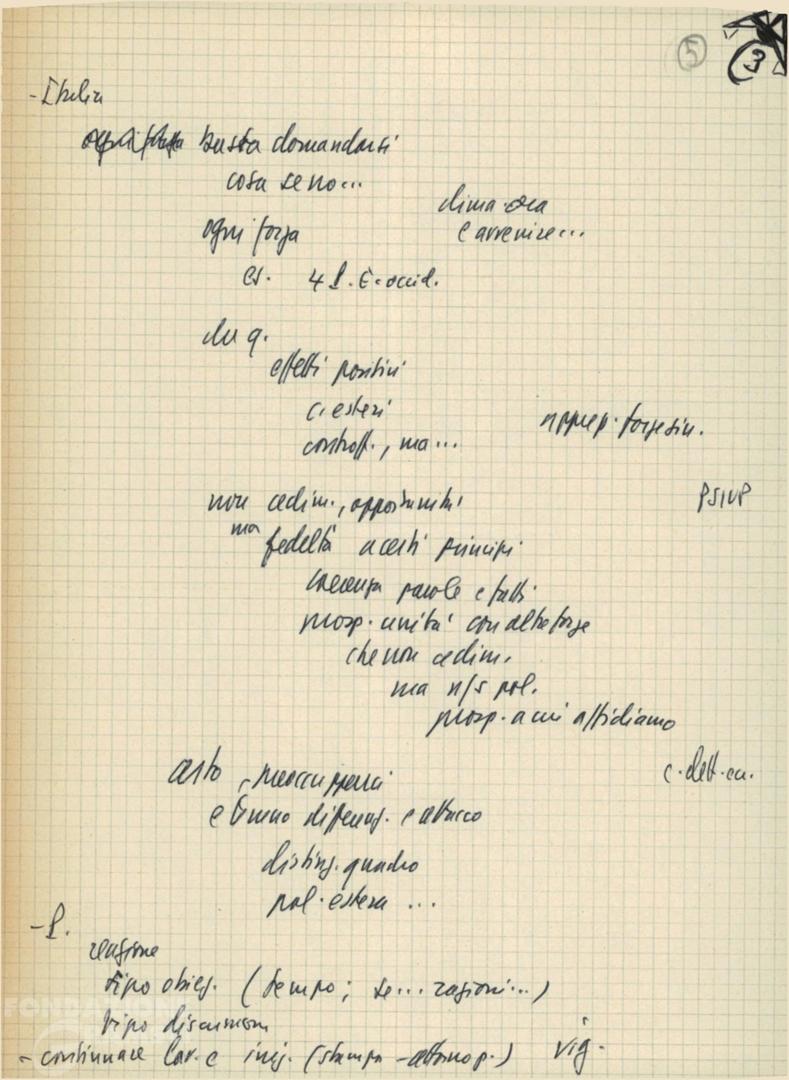 5 3
- Italia
basta domandarsi
cosa se no...
clima ora
e avvenire...
ogni forza
es. 4 P. E. occid.
du q.
effetti positivi
c. esteri
controff., ma...
forze sin.
non cedim., opportunità
PSIUP
ma fedeltà a certi principi
coerenza parole e fatti
prosp. unità con altre forze
che non cedim.
ma n/s pol.
prosp. a cui affidiamo
certo, preoccuparci
c. dell. eu.
e diffenz. e attacco
disting. quadro
pol. estera ...
- P.
reazione
tipo obiez. (tempo; se... ragioni...)
tipo discussioni
- continuare lav. e iniz. (stampa - attorno p.) vig.
FOND